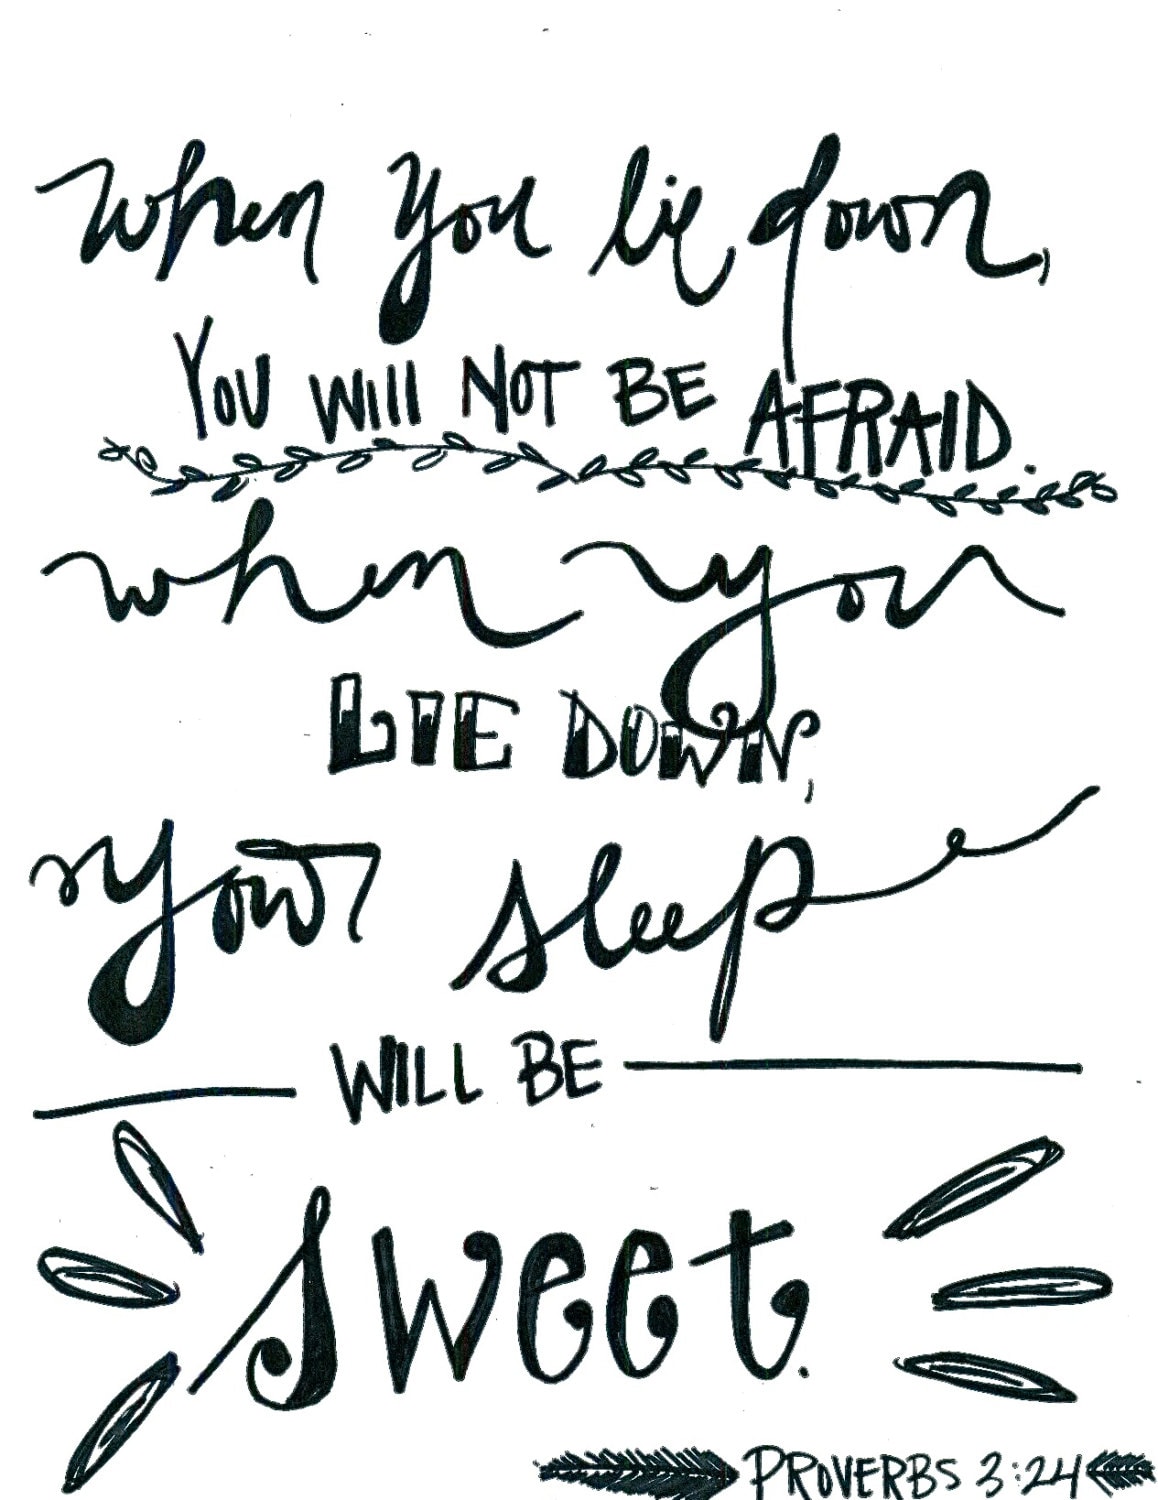 when you lie down,
YOU WILL NOT BE AFRAID.
when you
LIE DOWN,
your sleep
WILL BE
sweet.
PROVERBS 3:24